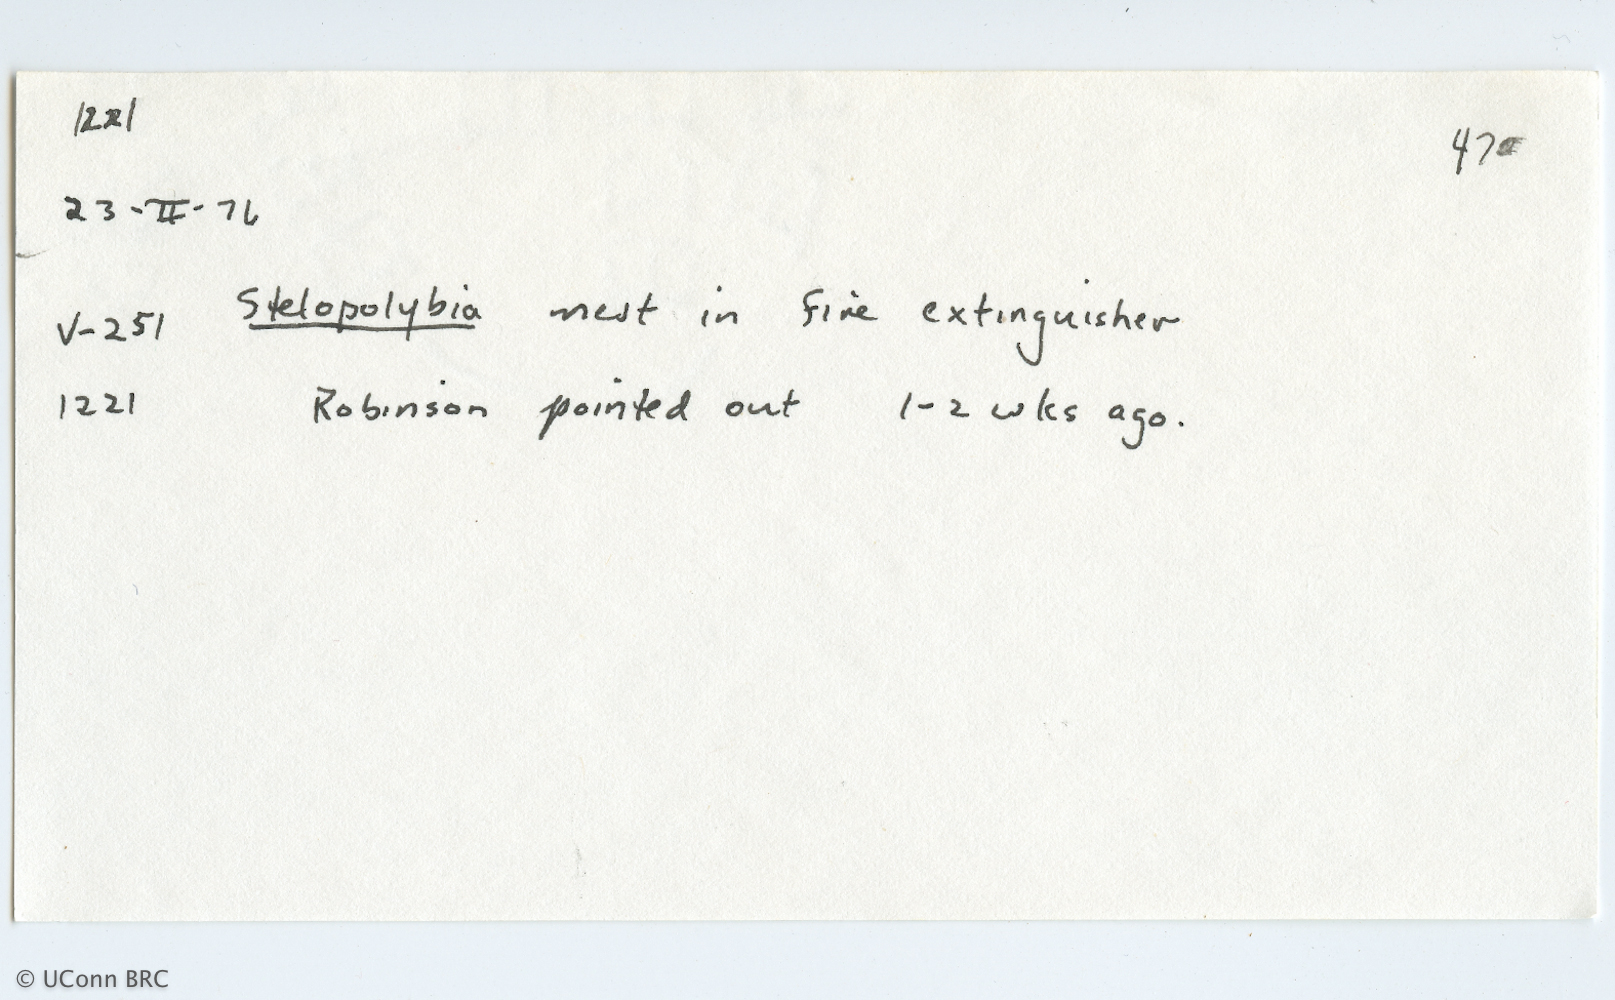 1221
47
23-II-76
V-251 Stelopolybia nest in fire extinguisher
1221 Robinson pointed out 1-2 wks ago.
© UConn BRC